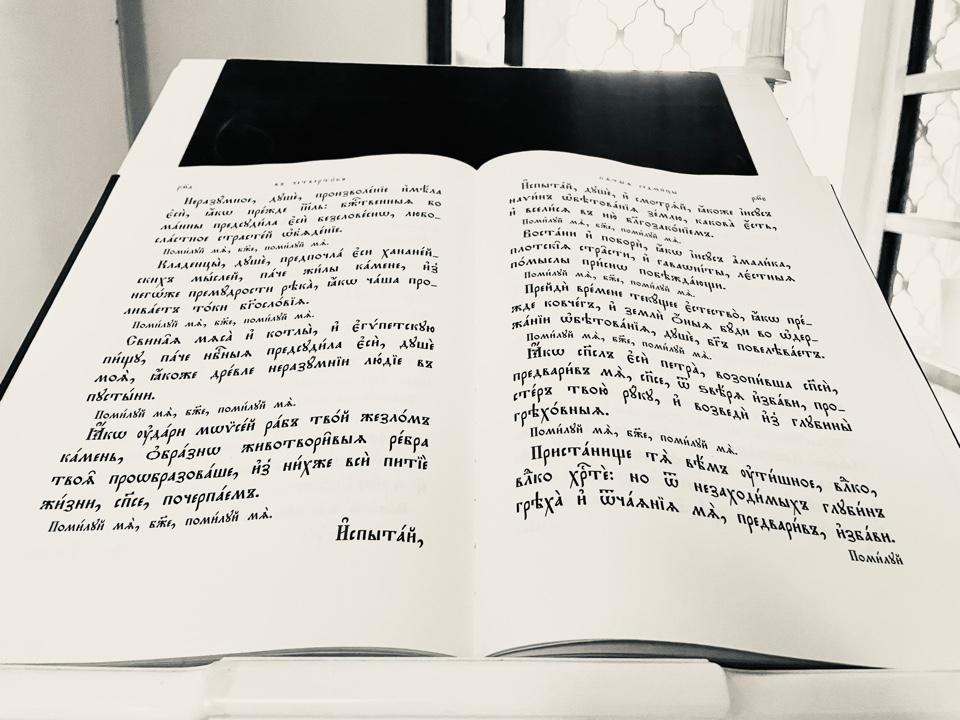 рм҃д
въ четверто́къ
Неразу́мное, дꙋшѐ, произволе́нїе и҆мѣ́ла
є҆сѝ, ꙗ҆́кѡ пре́жде і҆и҃ль: бж҃е́ственныѧ бо
ма́нны предсꙋди́ла є҆сѝ безслове́снѡ, любо-
сла́стное страсте́й ѡ҆б̾ѧде́нїе.
Поми́лꙋй мѧ̀, бж҃е, поми́лꙋй мѧ̀.
Кладенцы̀, дꙋшѐ, предпочла̀ є҆сѝ ханане́й-
скихъ мы́слей, па́че жи́лы ка́мене, и҆з̾
негѡ́же премꙋ́дрости рѣка̀, ꙗ҆́кѡ ча́ша про-
лива́етъ то́ки бг҃осло́вїѧ.
Поми́лꙋй мѧ̀, бж҃е, поми́лꙋй мѧ̀.
Свина̑ѧ мѧса̀ и҆ котлы̀, и҆ є҆гѵ́петскꙋю
пи́щꙋ, па́че нбⷭ҇ныѧ предсꙋди́ла є҆сѝ, дꙋшѐ
моѧ̀, ꙗ҆́коже дре́вле неразꙋ́мнїи лю́дїе въ
пꙋсты́ни.
Поми́лꙋй мѧ̀, бж҃е, поми́лꙋй мѧ̀.
Ꙗ҆́кѡ ᲂу҆да́ри мѡѷсе́й ра́бъ тво́й жезло́мъ
ка́мень, ѻ҆бра́знѡ животвори̑выѧ ре́бра
твоѧ̑ проѡбразова́ше, и҆з̾ ни́хже всѝ питїѐ
жи́зни, сп҃се, почерпа́емъ.
Поми́лꙋй мѧ̀, бж҃е, поми́лꙋй мѧ̀.
И҆спыта́й,
пѧ́тыѧ седми́цы
рм҃є
И҆спыта́й, дꙋшѐ, и҆ смотрѧ́й, ꙗ҆́коже і҆исꙋ́съ
наѵи́нъ ѡ҆бѣтова́нїѧ зе́млю, какова̀ є҆́сть,
и҆ всели́сѧ въ ню̀ бл҃гозако́нїемъ.
Поми́лꙋй мѧ̀, бж҃е, поми́лꙋй мѧ̀.
Воста́ни и҆ поборѝ, ꙗ҆́кѡ і҆исꙋ́съ а҆мали́ка,
плотскі̑ѧ стра̑сти, и҆ гаваѡни́ты, ле́стныѧ
по́мыслы при́снѡ побѣжда́ющи.
Поми́лꙋй мѧ̀, бж҃е, поми́лꙋй мѧ̀.
Прейдѝ вре́мене текꙋ́щее є҆стество̀, ꙗ҆́кѡ пре́-
жде ковче́гъ, и҆ землѝ ѻ҆́ныѧ бꙋ́ди во ѡ҆дер-
жа́нїи ѡ҆бѣтова́нїѧ, дꙋшѐ, бг҃ъ повелѣва́етъ.
Поми́лꙋй мѧ̀, бж҃е, поми́лꙋй мѧ̀.
Ꙗ҆́кѡ сп҃слъ є҆сѝ петра̀, возопи́вша сп҃сѝ,
предвари́въ мѧ̀, сп҃се, ѿ ѕвѣ́рѧ и҆зба́ви, про-
сте́ръ твою̀ рꙋ́кꙋ, и҆ возведѝ и҆з̾ глꙋбины̀
грѣхо́вныѧ.
Поми́лꙋй мѧ̀, бж҃е, поми́лꙋй мѧ̀.
Приста́нище тѧ̀ вѣ́мъ ᲂу҆ти́шное, влⷣко,
влⷣко хрⷭ҇тѐ: но ѿ незаходи́мыхъ глꙋби́нъ
грѣха̀ и҆ ѿча́ѧнїѧ мѧ̀, предвари́въ, и҆зба́ви.
Поми́лꙋй